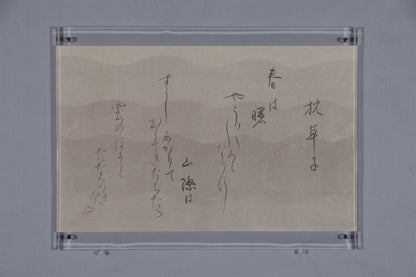 枕草子
春は
曙
やうやう白く
なりゆく
山際は
すこしあかりて
むらさきだちたる
雲のほそく
たなびきたる